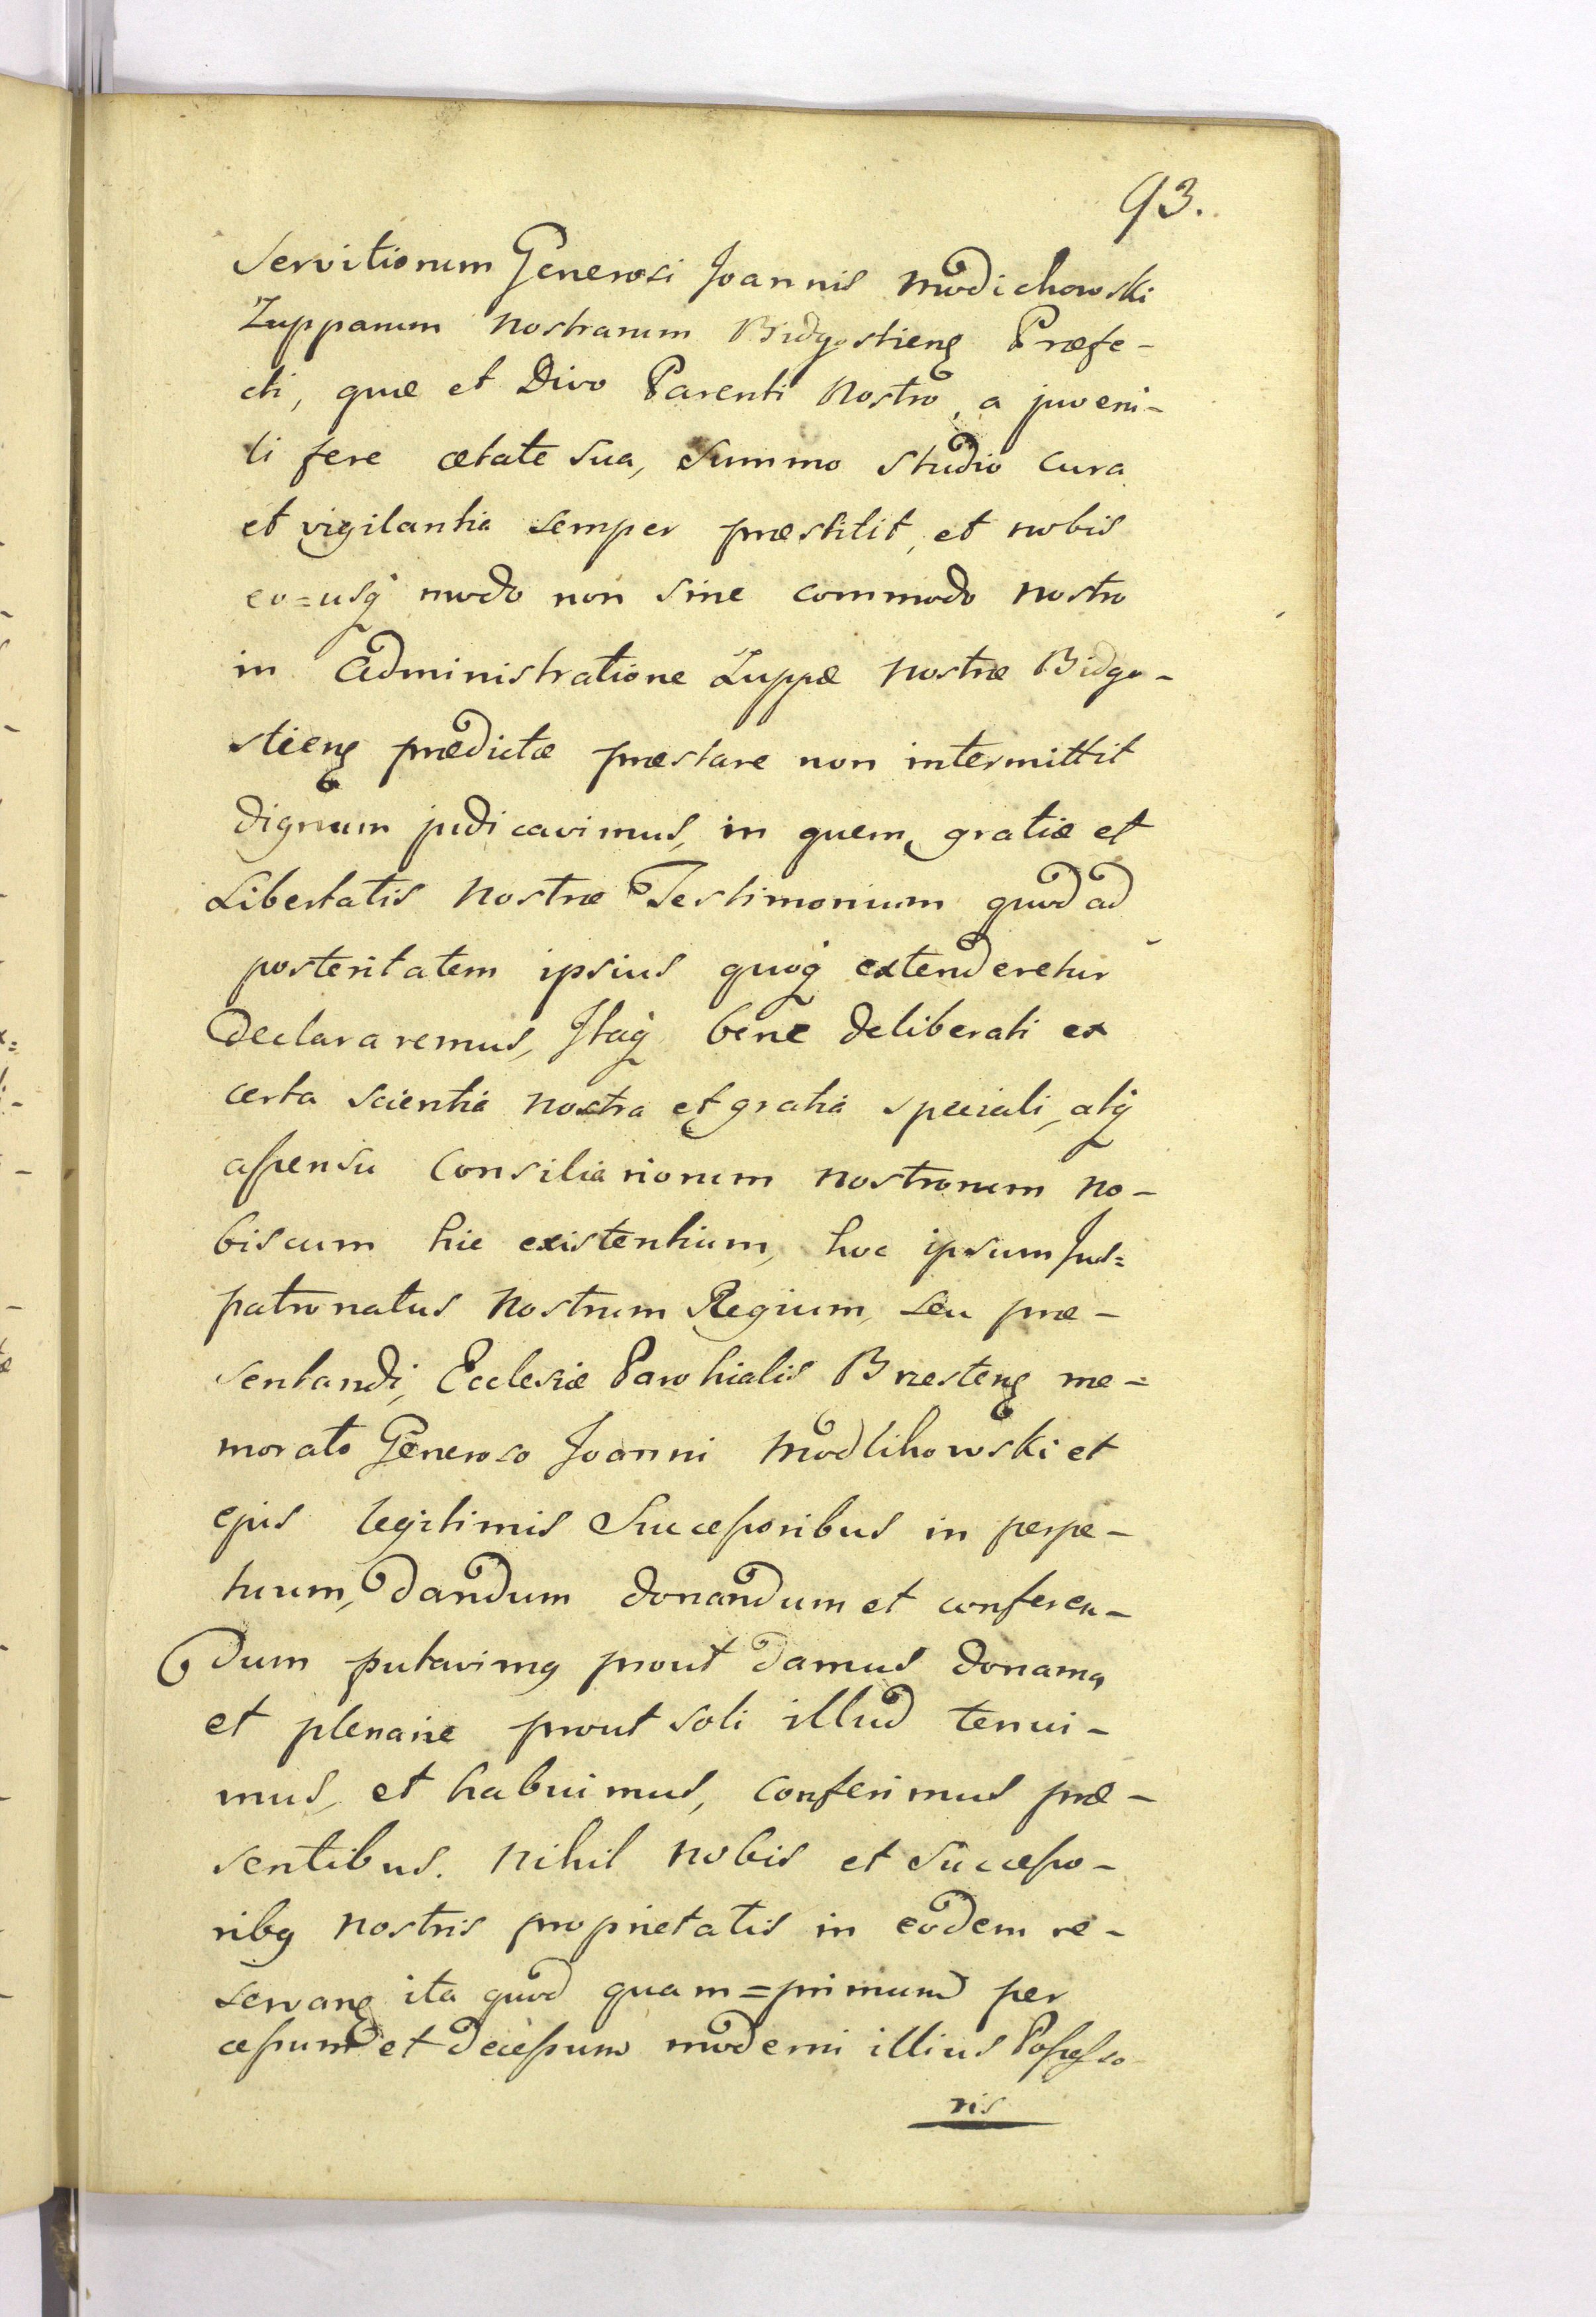 93.
Servitiorum Generosi Joannis Modichowski
Zupparum Nostrarum Bidgostieng Præfe-
cti, quæ et Divo Parenti Nostro, a juveni-
li fere ætate sua, Summo Studio Cura
et vigilantia semper præstitit, et nobis
eo=usq modo non sine commodo Nostro
in Administratione Zuppæ Nostræ Bidgo-
stieng prædictæ præstare non intermittit
dignum judicavimus, in quem gratiæ et
Libertatis Nostræ Testimonium quod ad
posteritatem ipsius quoq extenderetur
Declararemus, Itaq bene deliberati ex
certa scientia Nostra et gratia speciali, atq
assensu Consiliariorum Nostrorum No-
biscum hic existentium, hoc ipsum Jus=
patronatus Nostrum Regium, seu præ-
sentandi, Ecclesiæ Parohialis Bresteng me-
morato Generoso Joanni Modlihowski et
ejus legitimis Successoribus in perpe-
tuum, dandum donandum et conferen-
dum putavimg prout damus donamg
et plenarie prout soli illud tenui-
mus, et habuimus, Conferimus præ-
sentibus. Nihil Nobis et Successo-
ribg Nostris proprietatis in eodem re-
servang ita quod quam=primum per
cessum et decessum moderni illius Possesso
ris